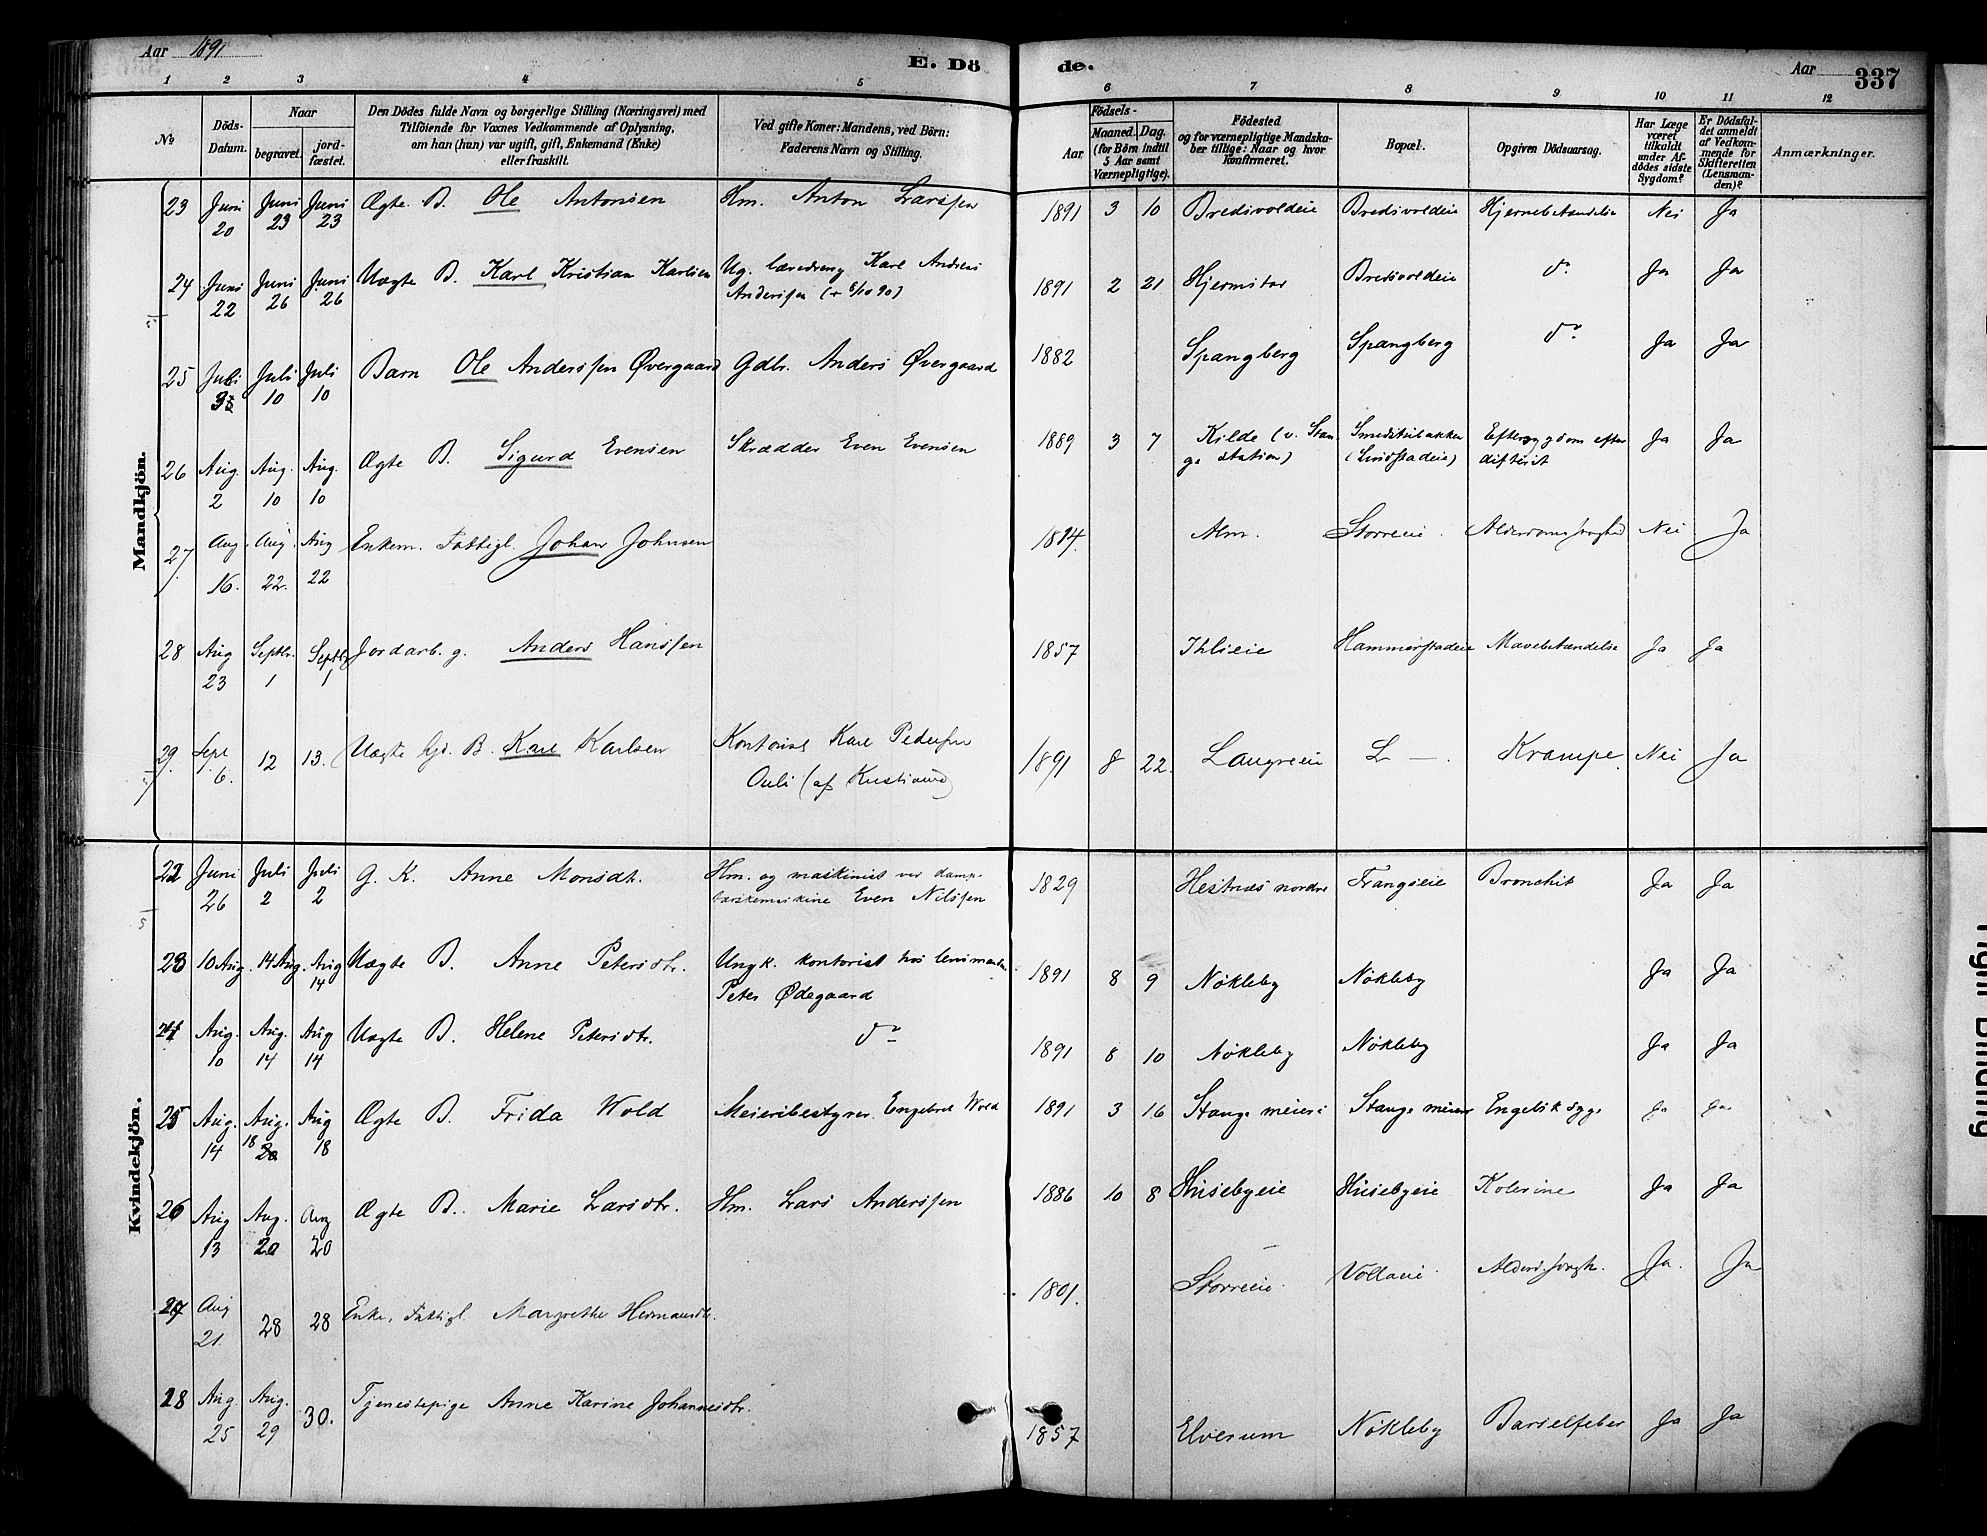 Aar 1891
E. Dö
de.
Aar
337
1 2 3 4 5 6 7 8 9 10 11 12
No
Döds-
Datum.
Naar
begravet.
jord-
fæstet.
Den Dödes fulde Navn og borgerlige Stilling (Næringsvei) med
Tilföiende for Voxnes Vedkommende af Oplysning,
om han (hun) var ugift, gift, Enkemand (Enke)
eller fraskilt.
Ved gifte Koner: Mandens, ved Börn:
Faderens Navn og Stilling.
Födsels-
Aar
Maaned. Dag.
(for Börn indtil
5 Aar samt
Værnepligtige).
Födested
og for værnepligtige Mandska-
ber tillige: Naar og hvor
Konfirmeret.
Bopæl.
Opgiven Dödsaarsag.
Har Læge
været
tilkaldt
under Af-
dödes sidste
Sygdom?
Er Dödsfal-
det anmeldt
af Vedkom-
mende for
Skifteretten
(Lensman-
den)?
Anmærkninger.
Mandkjön.
23 Juni 20 Juni 23 Juni 23 Ægte B. Ole Antonsen Hm. Anton Larssen 1891 3 10 Bredsvoldeie Bredsvoldeie Hjernebetændelse Nei Ja
24 Juni 22 Juni 26 Juni 26 Uægte B. Karl Kristian Karlsen Ug. læredreng Karl Andreas
Anderssen (+ 6/10 90) 1891 2 21 Hjermstad Bredsvoldeie do. Ja Ja
25 Juli 3 Juli 10 Juli 10 Barn Ole Anderssen Øvergaard Gdbr. Anders Øvergaard 1882 Spangberg Spangberg do. Ja Ja
26 Aug 2 Aug. 10 Aug. 10 Ægte B. Sigurd Evensen Skrædder Even Evensen 1889 3 7 Kilde (v. Stan-
ge station) Smedstubakken
(Lindstadeie) Eftersygdom efter
difterit Ja Ja
27 Aug 16. Aug. 22. Aug 22 Enkem. Fattigl. Johan Johnsen 1814. Alm. Storreeie. Alderdomssvaghed Nei Ja
28 Aug 23 Septbr. 1 Septbr 1 Jordarb. g. Anders Hanssen 1857 Ihlseie Hammerstadeie Mavebetændelse Ja Ja
29. Sept 6. 12 13. Uægte B. Karl Karlsen Kontorist Karl Pederssen
Ouli (af Kristiania) 1891 8 22. Langreeie L —. Krampe. Nei Ja
Kvindekjön.
22 Juni 26 Juli 2 Juli 2 G. K. Anne Monsdt. Hm. og maskinist ved damp-
tærskemaskine Even Nilssen 1829 Hestnæs nordre Frangseie Bronchit Ja Ja
23 10 Aug. 14 Aug. Aug 14 Uægte B. Anne Petersdtr. Ungk. kontorist hos lensmanden
Peter Ødegaard 1891 8 9 Nökleby Nökleby Ja Ja
24 Aug. 10 Aug. 14 Aug 14 Uægte B. Helene Petersdtr. do 1891 8 10 Nökleby Nökleby Ja Ja
25 Aug. 14 Aug. 18 20 Aug 18 Ægte B. Frida Wold Meieribestyrer Engebret Wold 1891 3 16 Stange meieri Stange meieri Engelsk syge Ja Ja
26 Aug 13 Aug. 20 Aug 20 Ægte B. Marie Larsdtr. Hm. Lars Anderssen 1886 10 8 Husebyeie Husebyeie Kolerine Ja Ja
27 Aug 21. 28 28 Enke, Fattigl. Margrethe Hermansdtr. 1801. Storreeie. Vollaeie Ja. Ja
28 Aug. 25 Aug. 29 30. Tjenestepige Anne Karine Johannesdtr. 1857 Elverum Nökleby Barselfeber Ja Ja